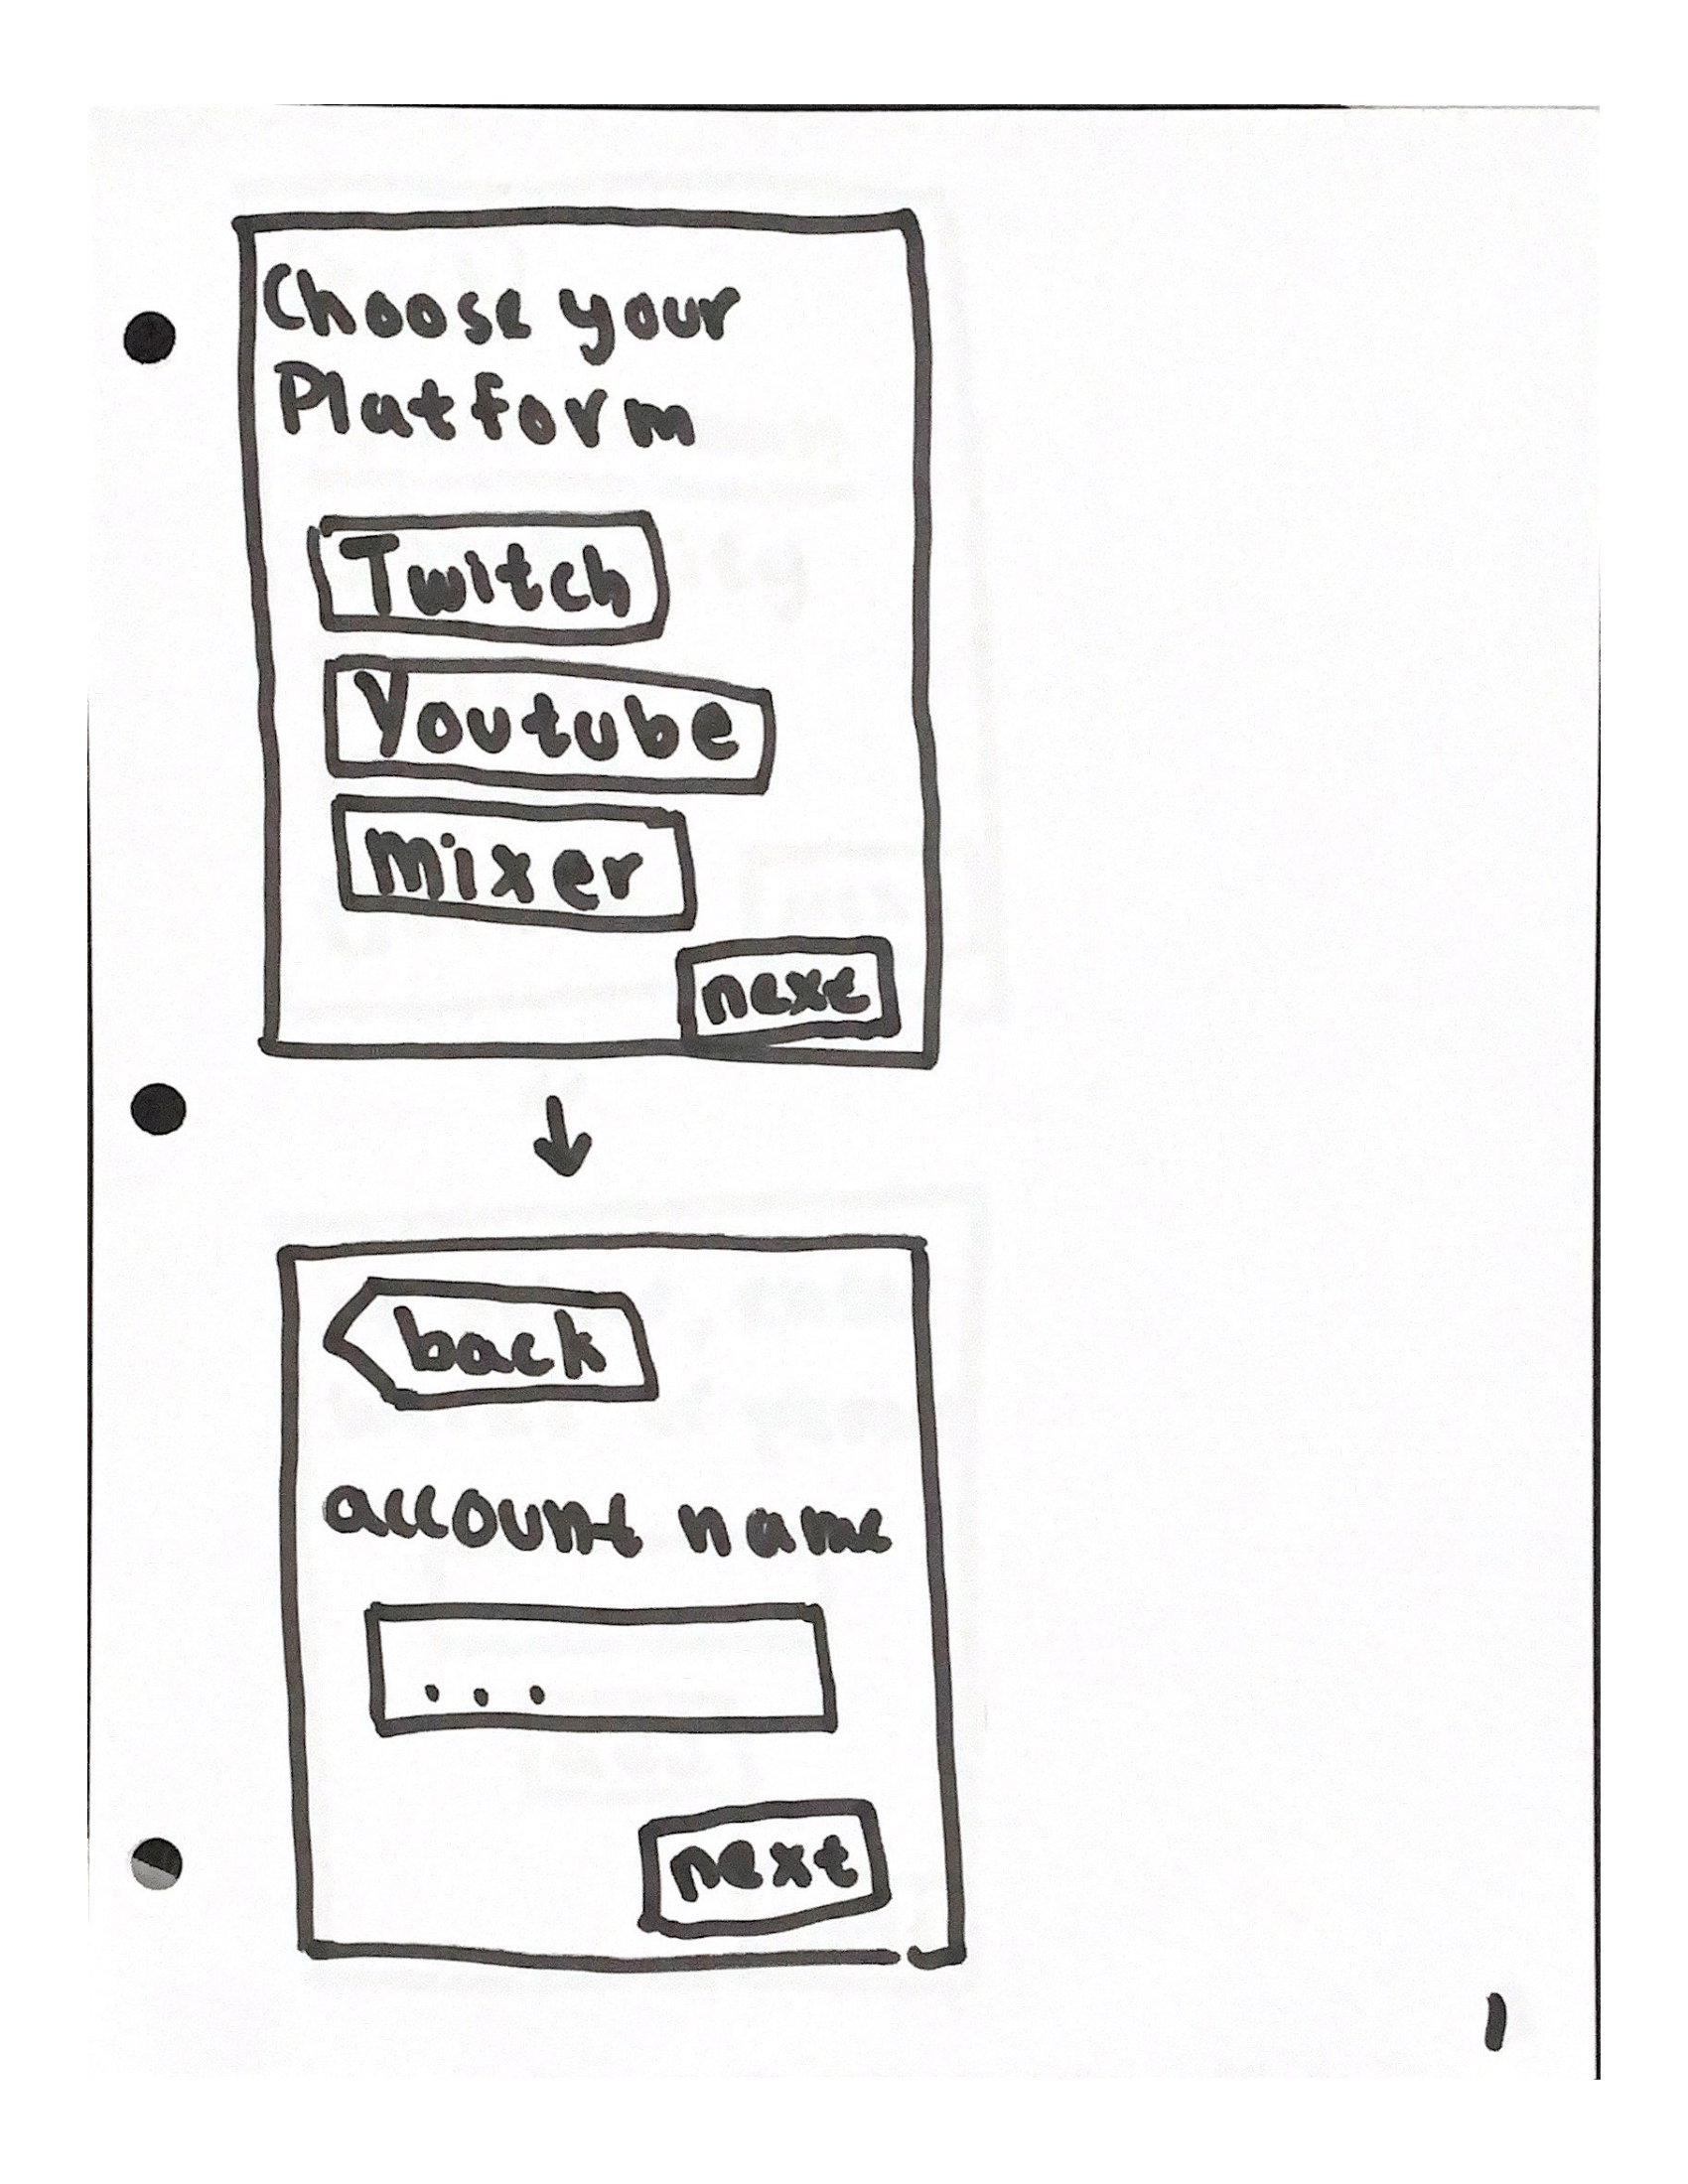 Choose your
Platform
Twitch
Youtube
mixer
next
back
account name
...
next
1